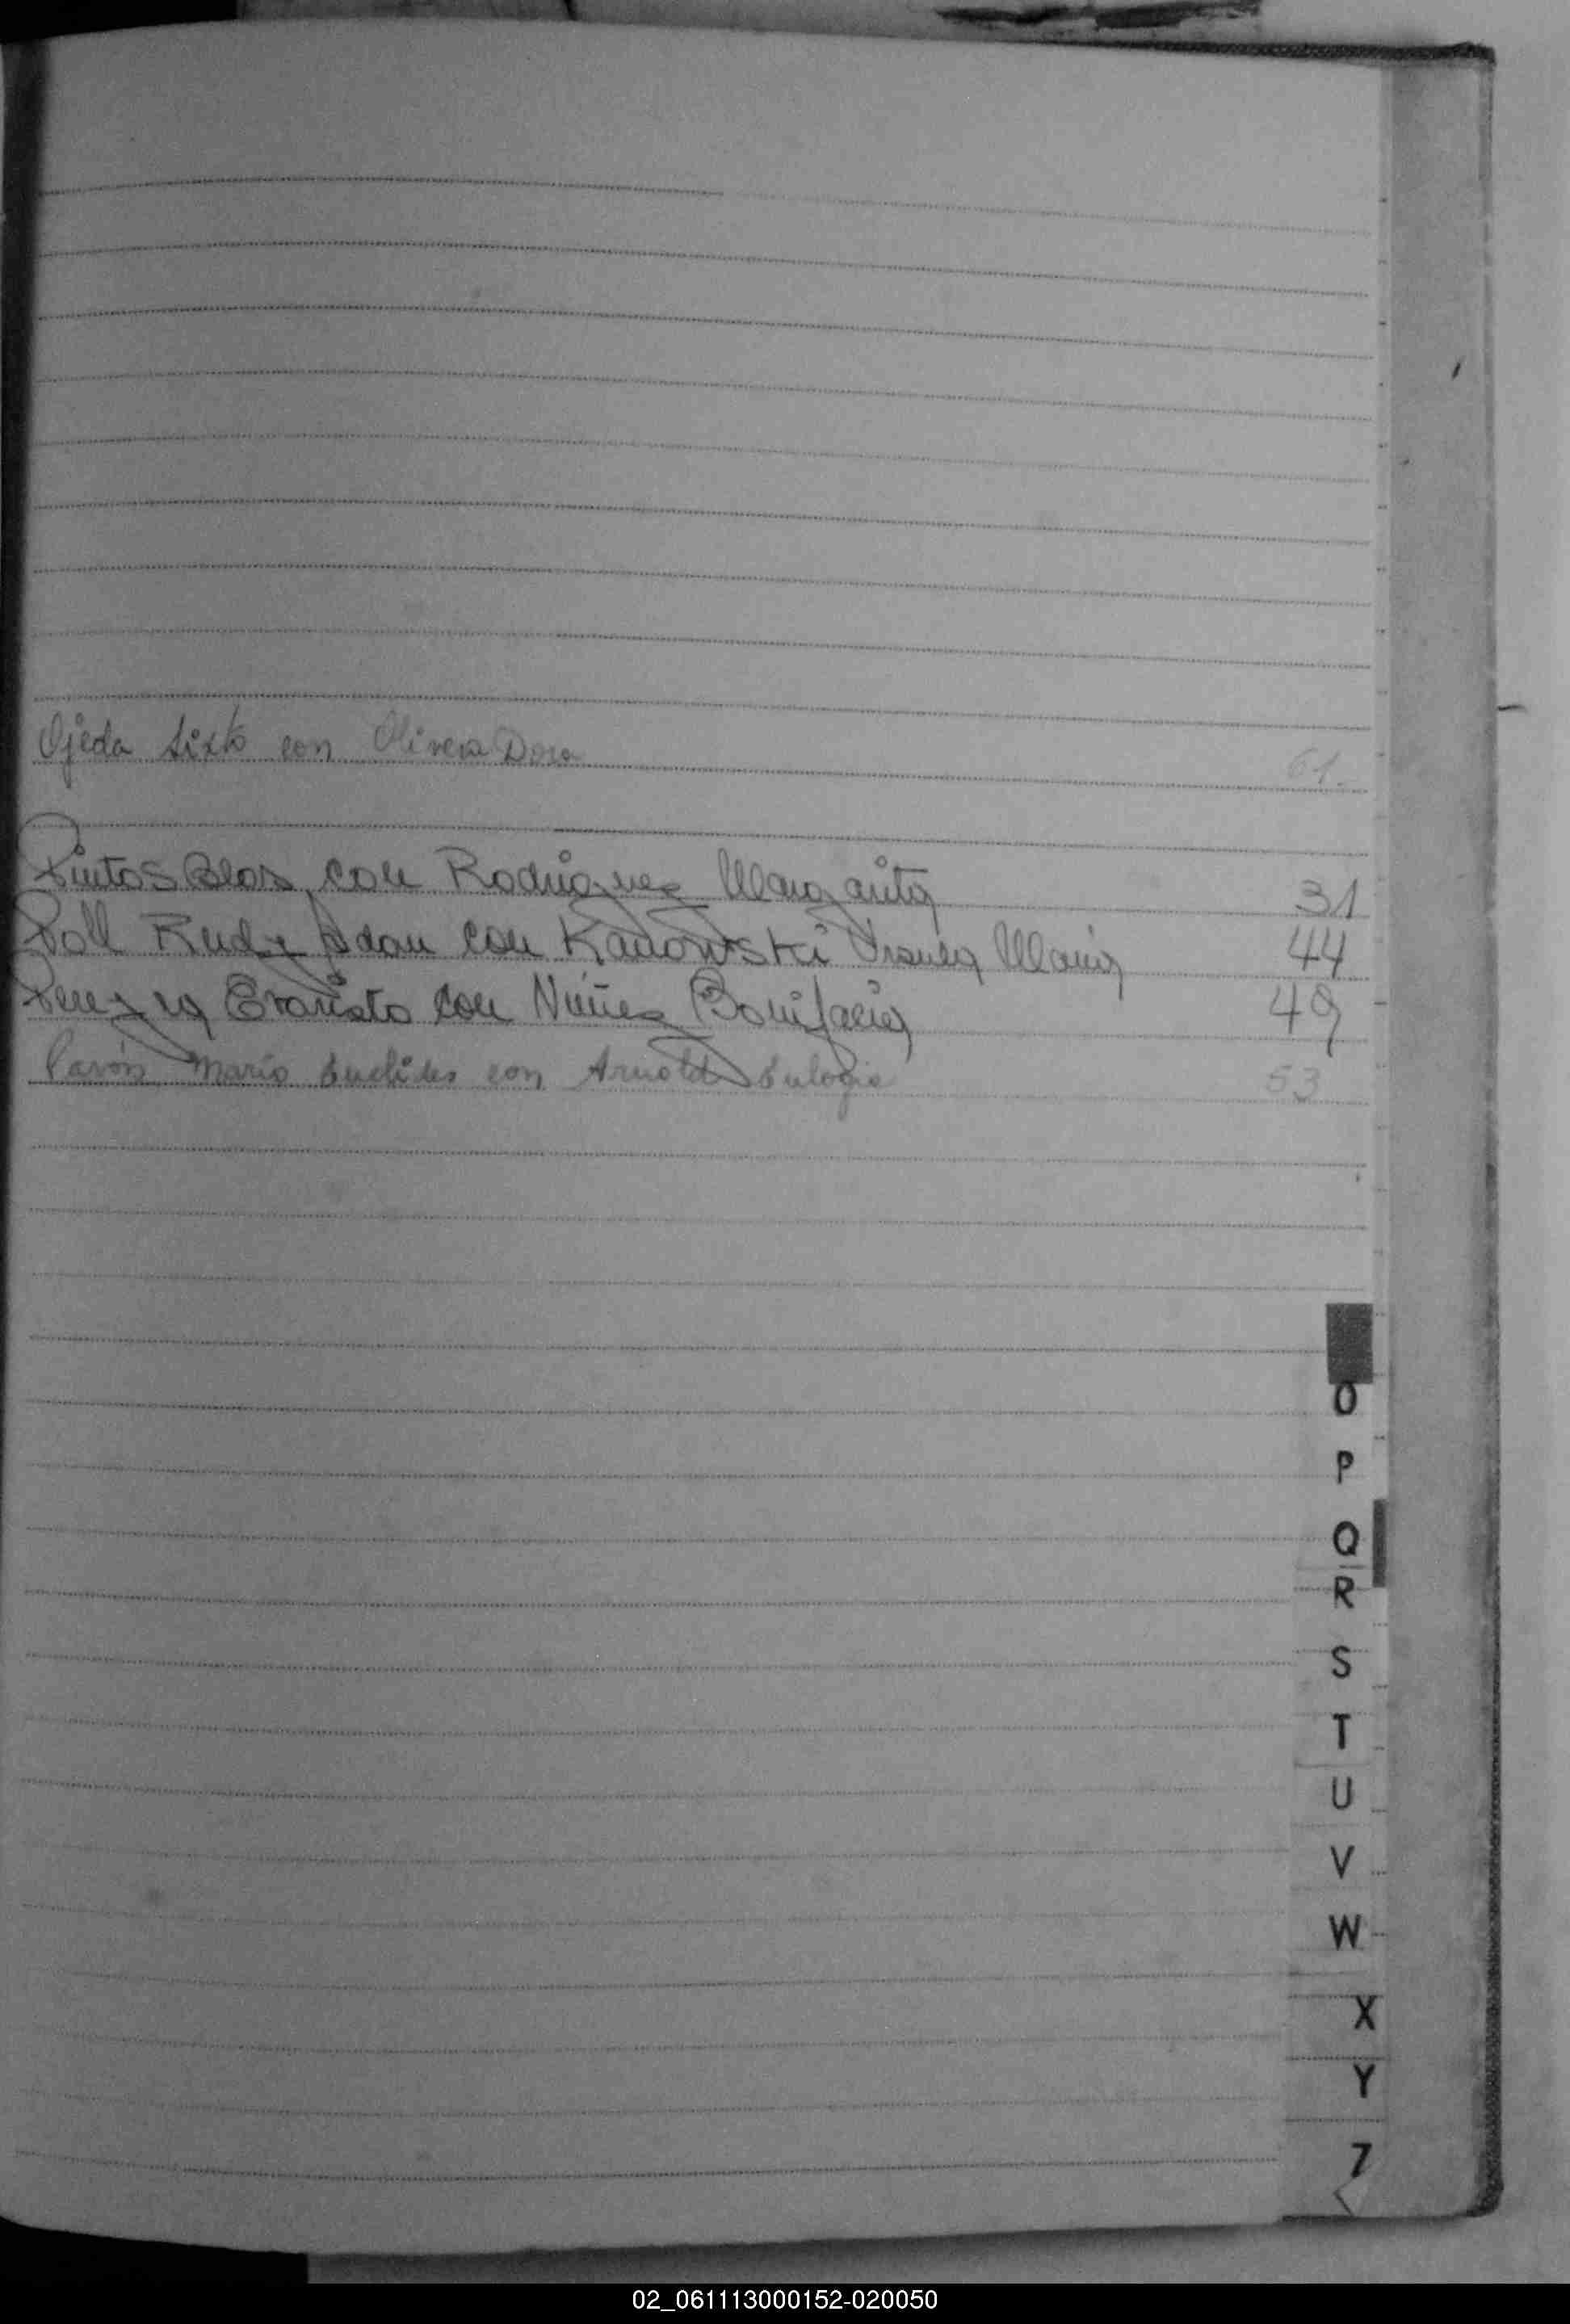 Ojeda Sixto con Olivera Dora 61
Pintos Blas con Rodriguez Margarita 31
Poll Rudy Adan con Kanowski Ursula Maria 44
Evaristo con Núñez Bonifacia 49
Pavón Mario Euclides con Arnold Eulogia 53
O
P
Q
R
S
T
U
V
W
X
Y
Z
02_061113000152-020050